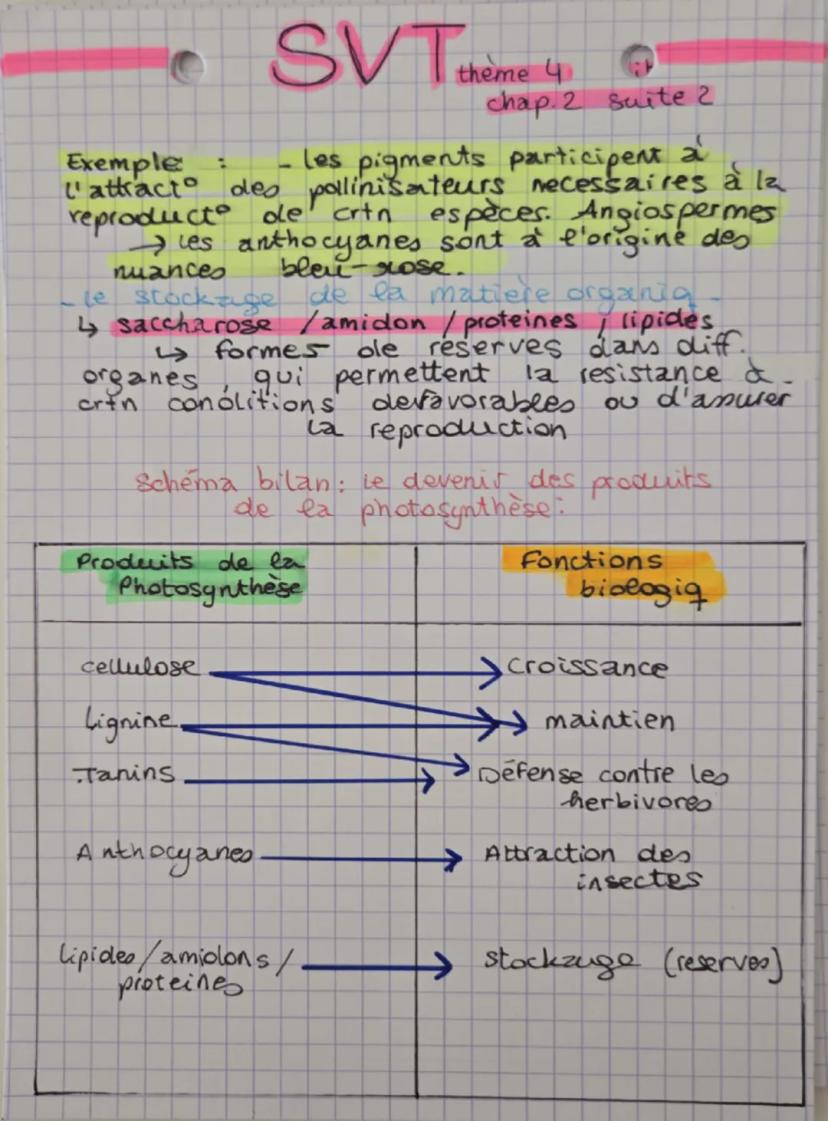 SVT thème 4
chap.2 suite 2
Exemple : - les pigments participent à
l'attract° des pollinisateurs necessaires à la
reproduct° de crtn espèces. Angiospermes
→ les anthocyanes sont à l'origine des
nuances bleu-rose.
- le stockage de la matière organiq -
↳ saccharose / amidon / proteines ; lipides
↳ formes de réserves dans diff.
organes, qui permettent la resistance à
crtn conditions defavorables ou d'assurer
la reproduction
Schéma bilan : le devenir des produits
de la photosynthèse :
Produits de la
Photosynthèse
Fonctions
biologiq
cellulose → croissance
Lignine → maintien
Tanins → Défense contre les
herbivores
Anthocyanes → Attraction des
insectes
lipides/amidons/
proteines → stockage (reserves)